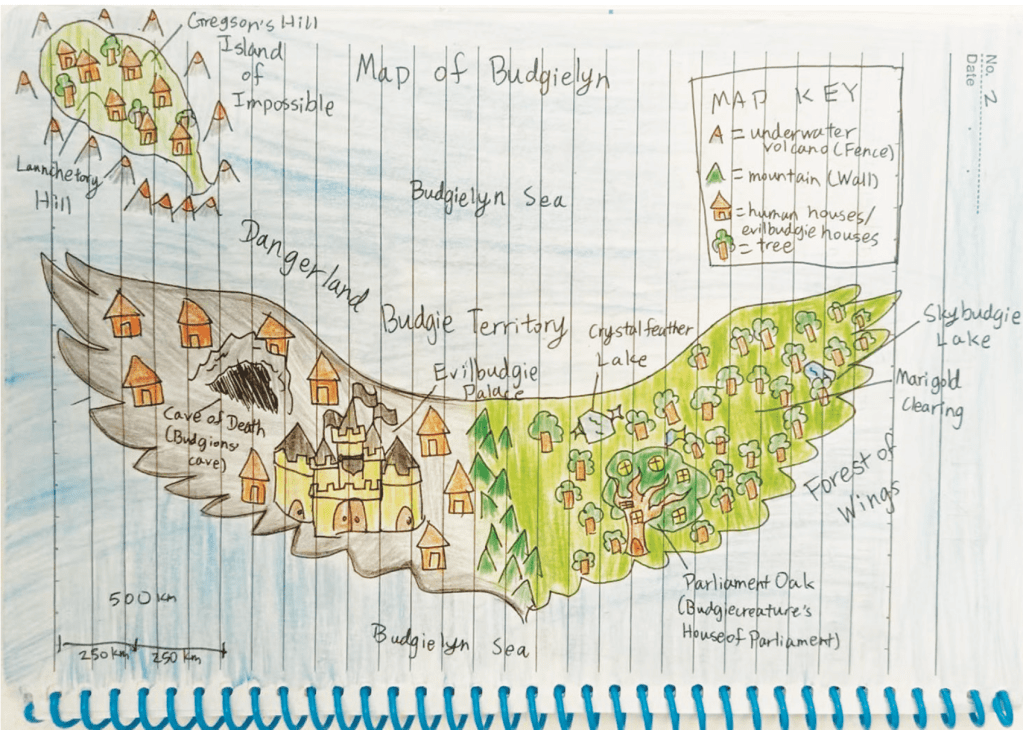 Gregson's Hill
Island
of
Impossible
Map of Budgielyn
No. 2
Date
MAP KEY
= underwater
volcano (Fence)
= mountain (Wall)
= human houses/
evilbudgie houses
= tree
Launchetory
Hill
Budgielyn Sea
Dangerland
Budgie Territory
Crystalfeather
Lake
Skybudgie
Lake
Evilbudgie
Palace
Marigold
Clearing
Cave of Death
(Budgions'
cave)
Forest of
Wings
Parliament Oak
(Budgiecreature's
House of Parliament)
500 km
250 km 250 km
Budgielyn Sea